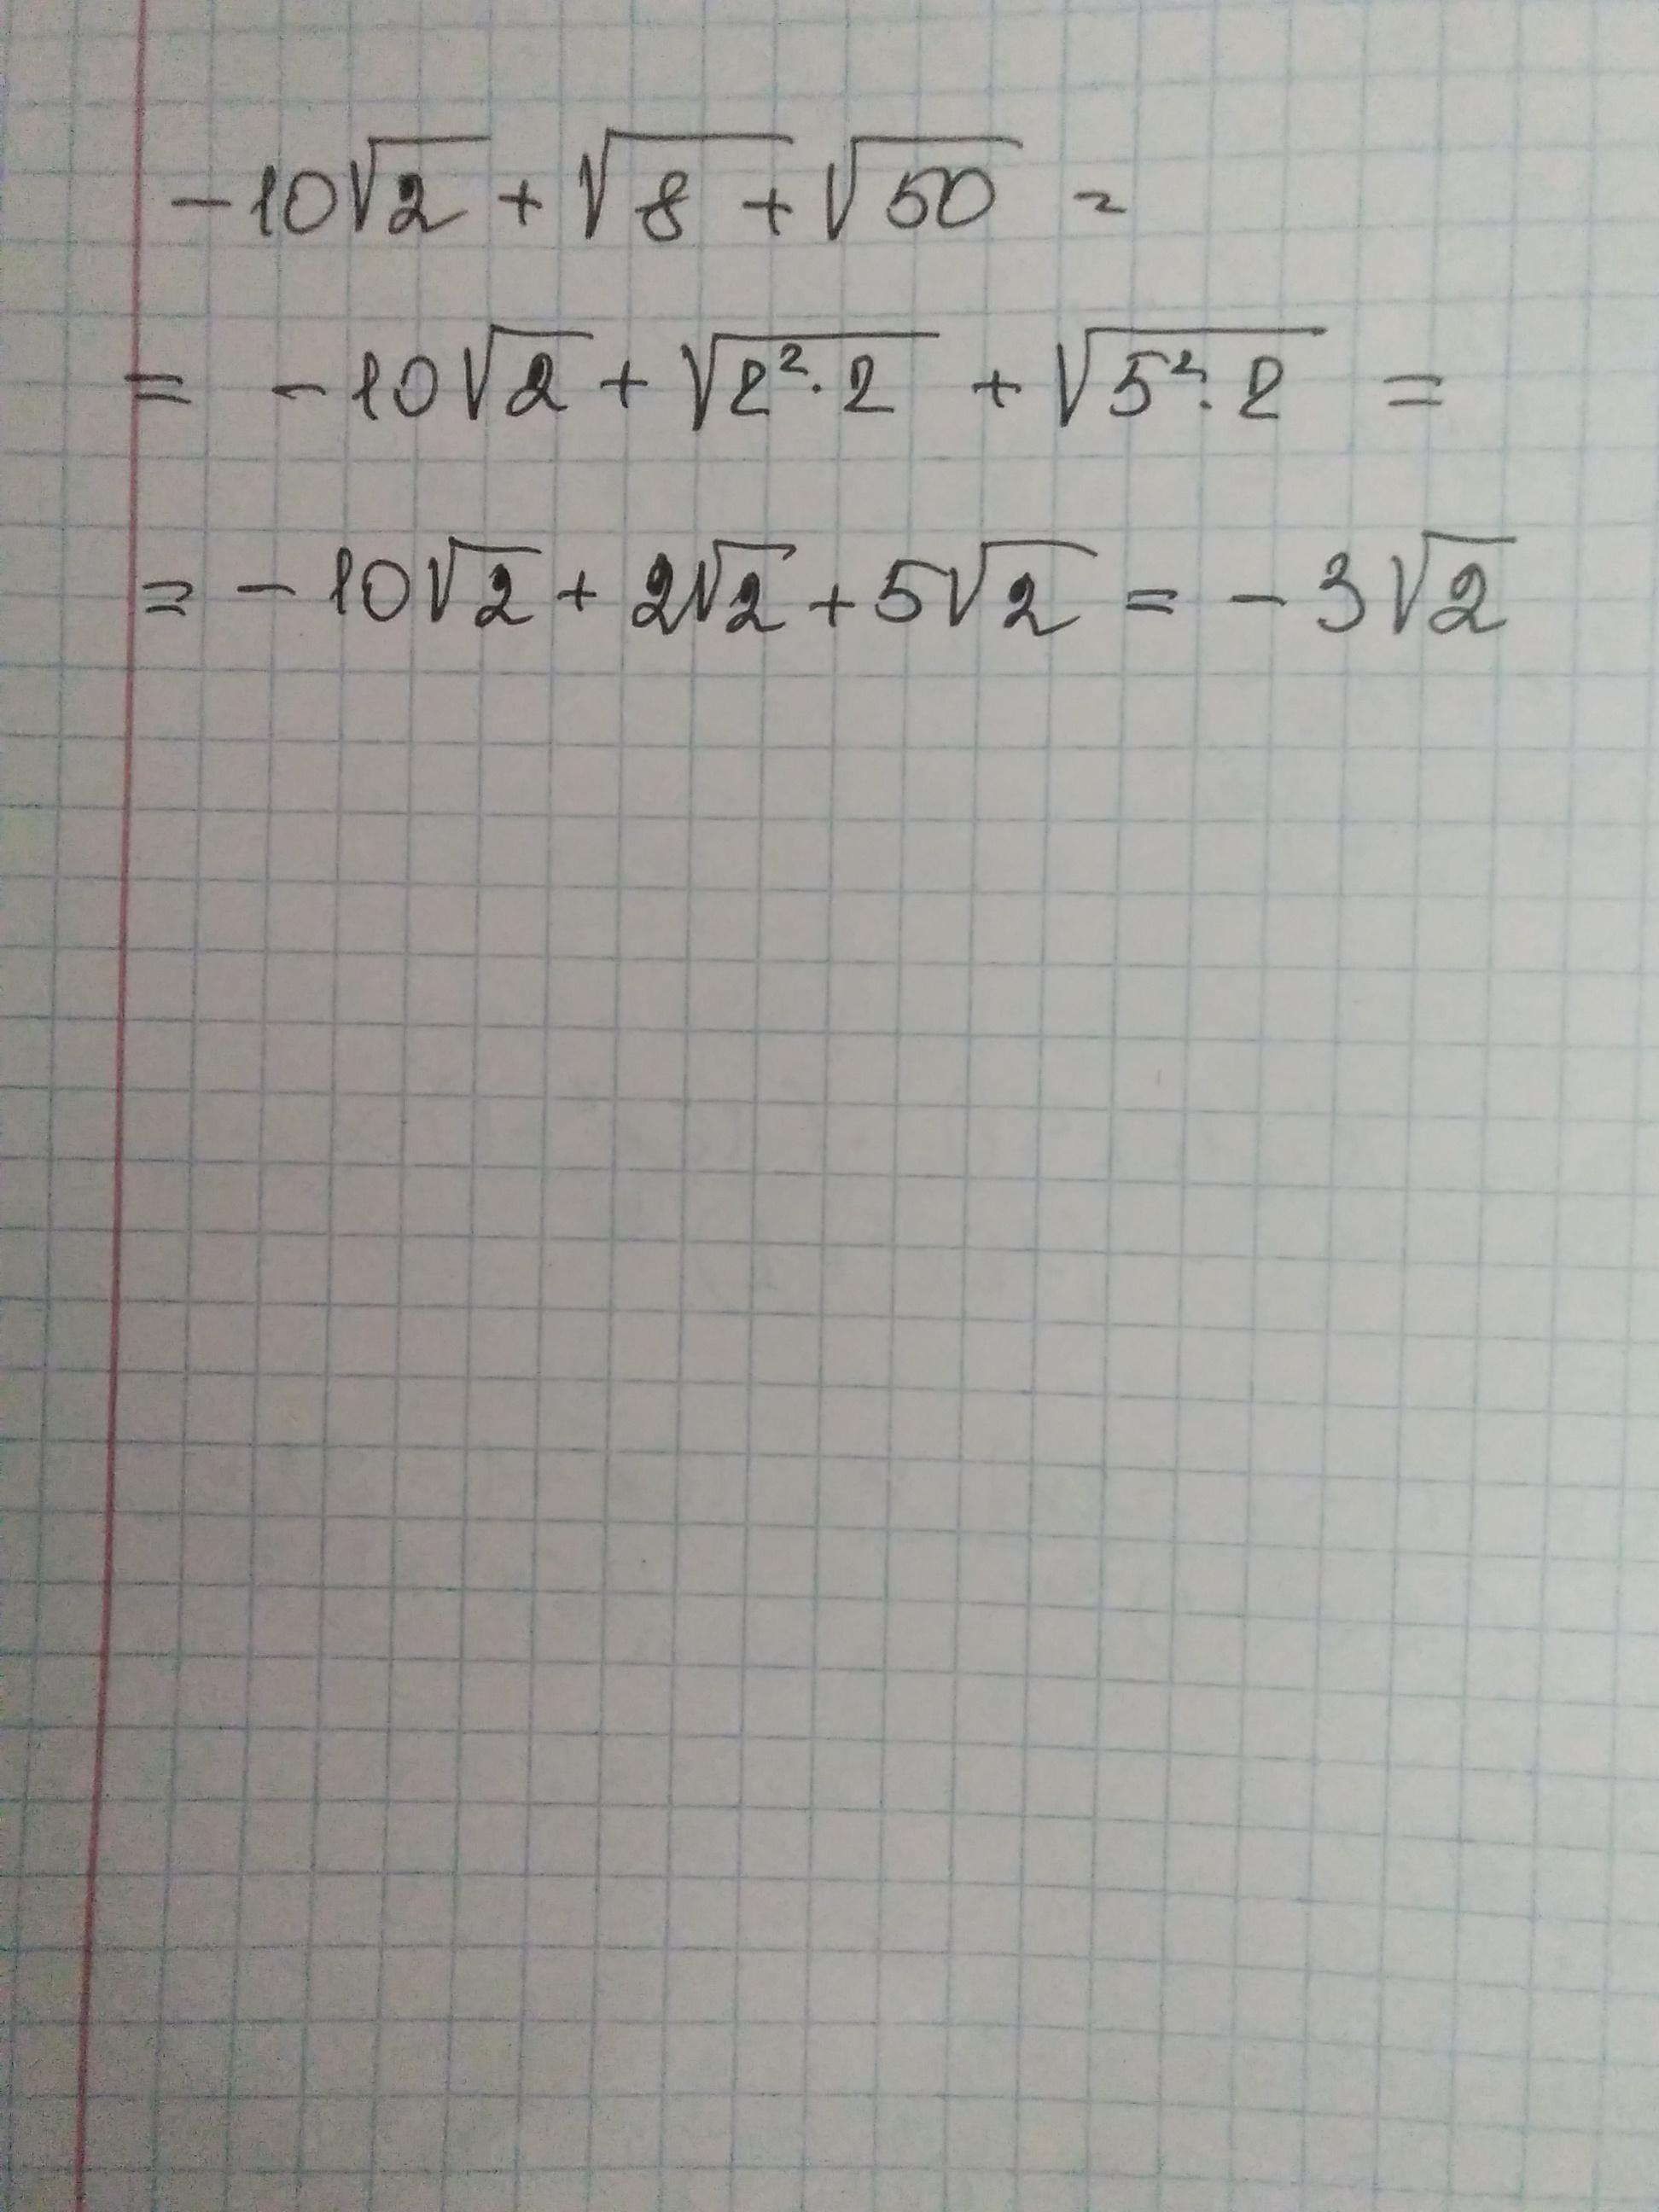 -10√2 + √8 + √50 =
= -10√2 + √2²·2 + √5²·2 =
= -10√2 + 2√2 + 5√2 = -3√2